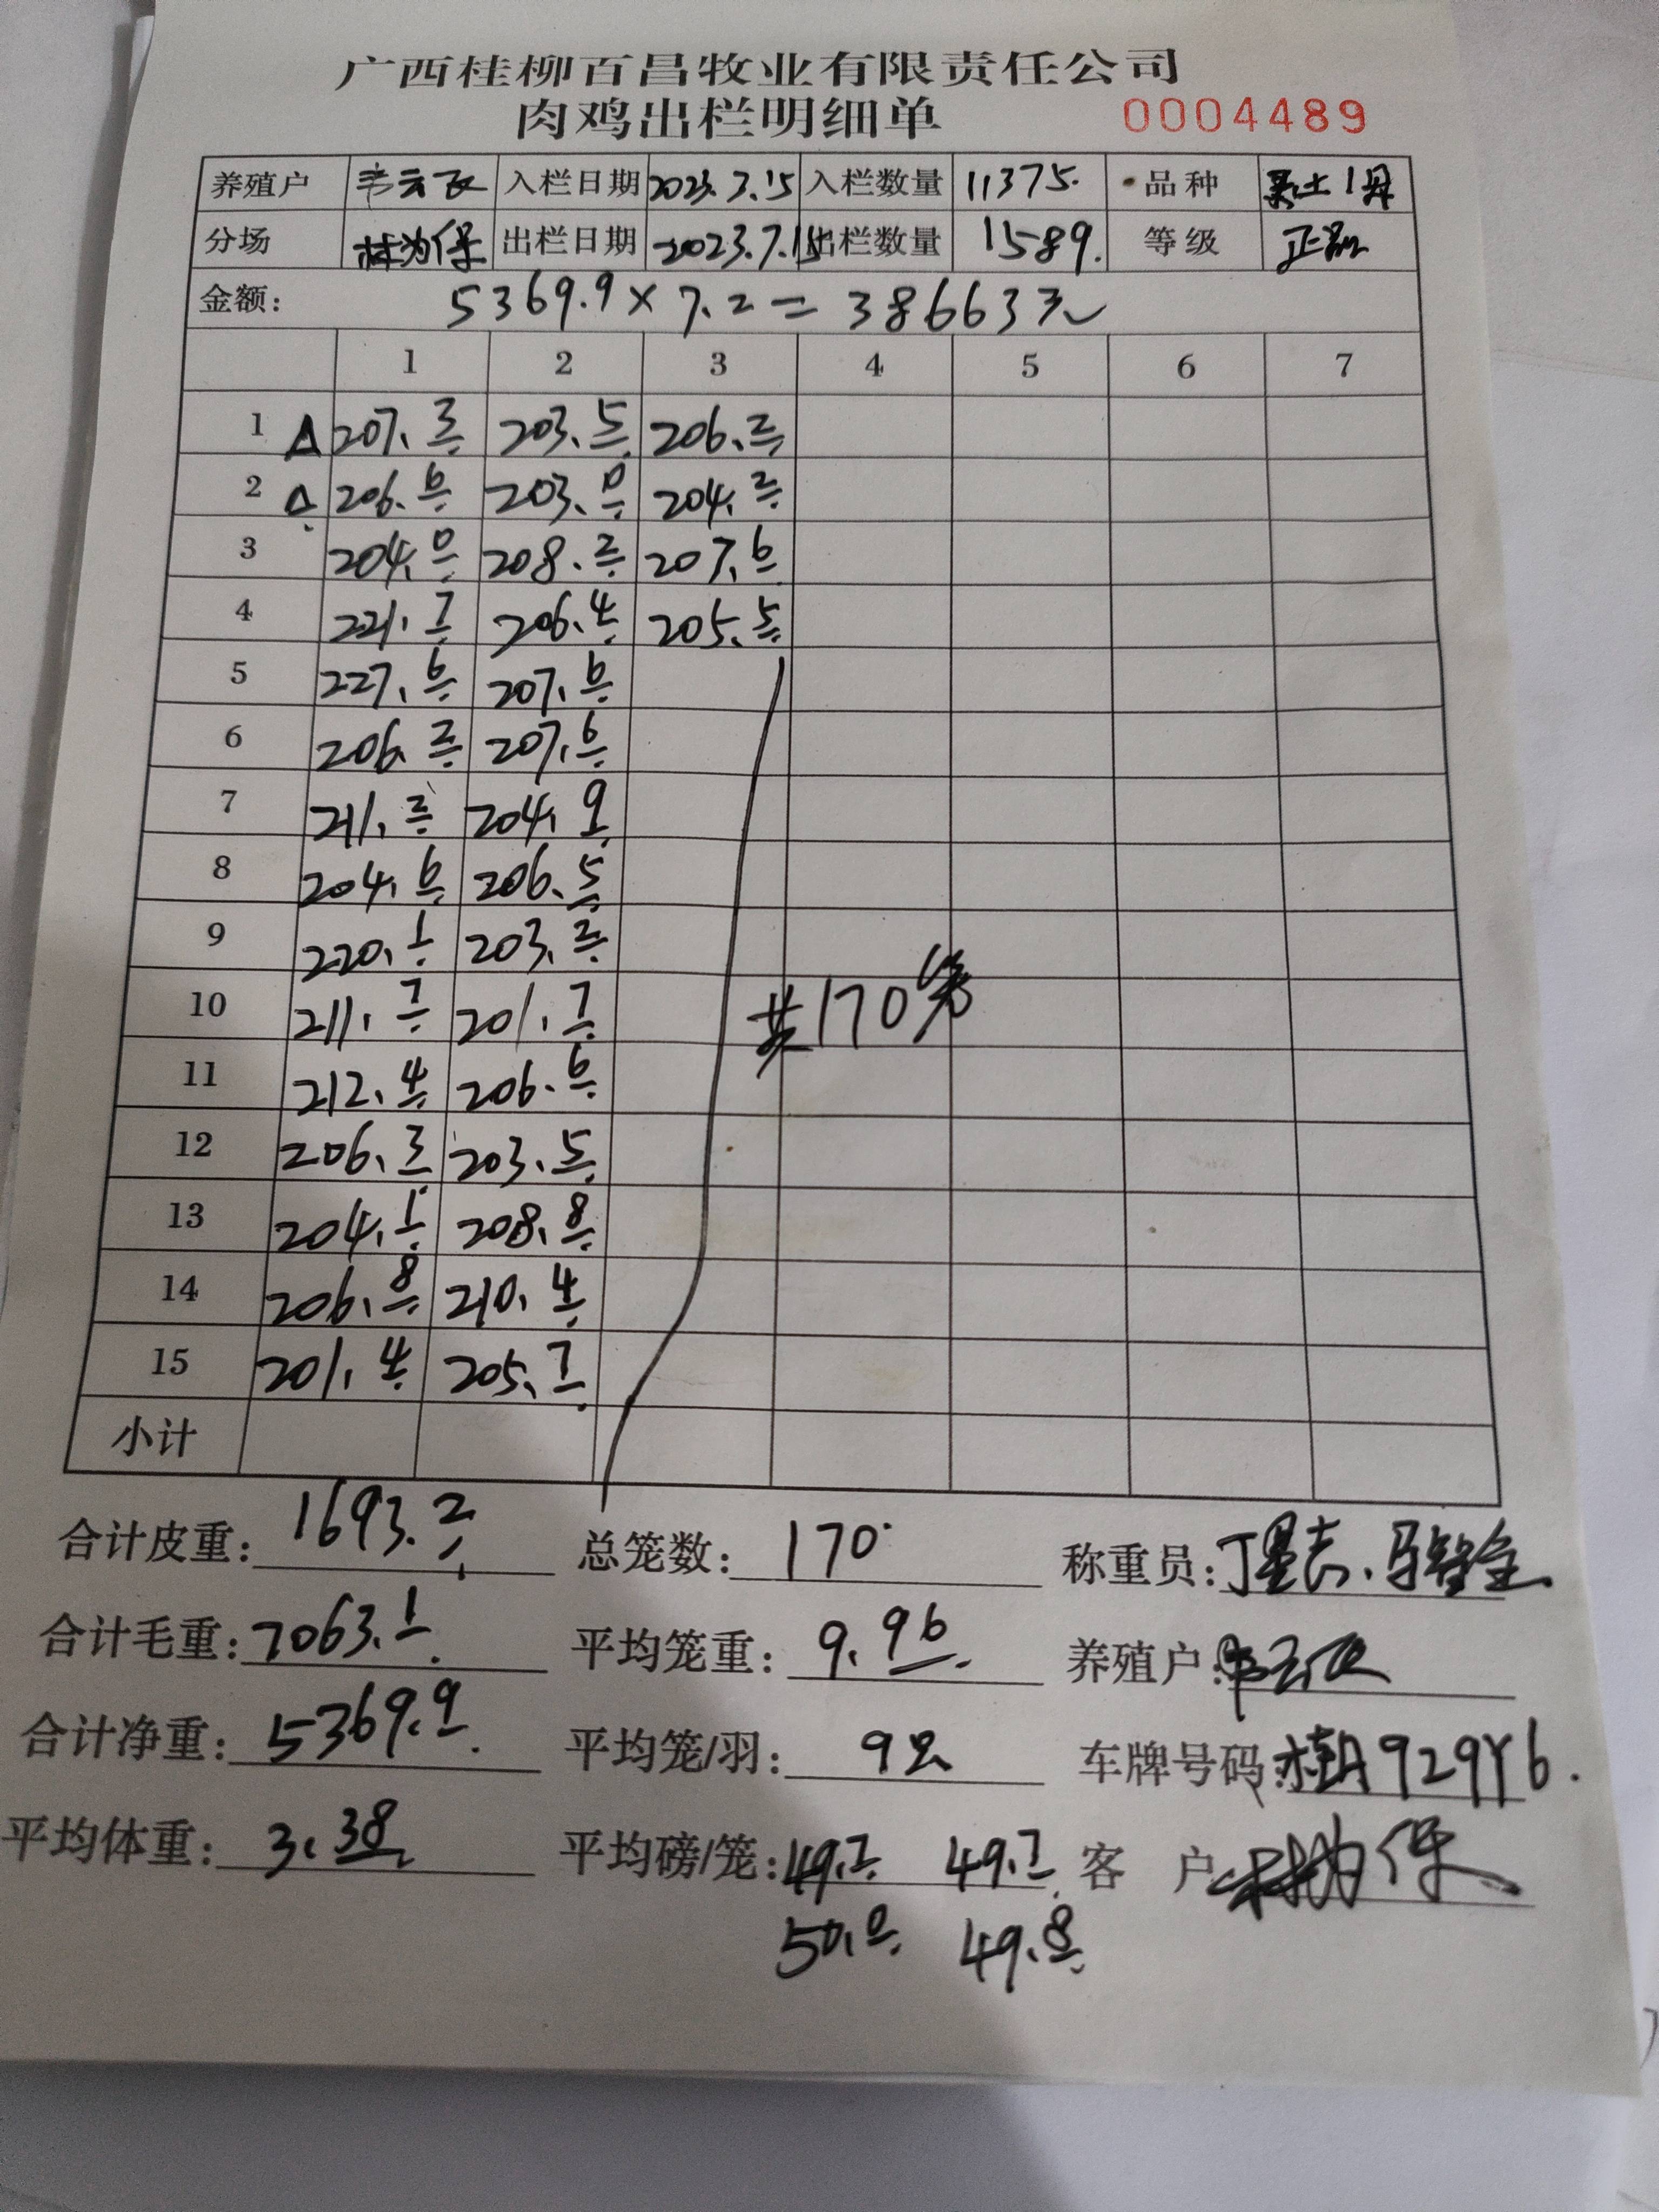 广西桂柳百昌牧业有限责任公司
肉鸡出栏明细单 0004489
养殖户 韦云飞 入栏日期 2023.7.15 入栏数量 11375. 品种
分场 林为保 出栏日期 2023.7.15 出栏数量 1589. 等级 正品
金额: 5369.9×7.2=38663元
1 2 3 4 5 6 7
1 △ 207.3 203.5 206.2
2 △ 206.6 203.0 204.2
3 204.0 208.2 207.6
4 221.7 206.4 205.5
5 227.6 207.6
6 206.2 207.6
7 211.2 204.9
8 204.6 206.5
9 220.1 203.2
10 211.7 201.7
11 212.4 206.6
12 206.3 203.5
13 204.1 208.8
14 206.8 210.4
15 201.4 205.7
共170笼
小计
合计皮重: 1693.2 总笼数: 170 称重员:
合计毛重: 7063.1 平均笼重: 9.96 养殖户: 韦云飞
合计净重: 5369.9 平均笼/羽: 9只 车牌号码: 929Y6.
平均体重: 3.38 平均磅/笼: 49.7 49.7 客 户 林为保
50.0 49.8